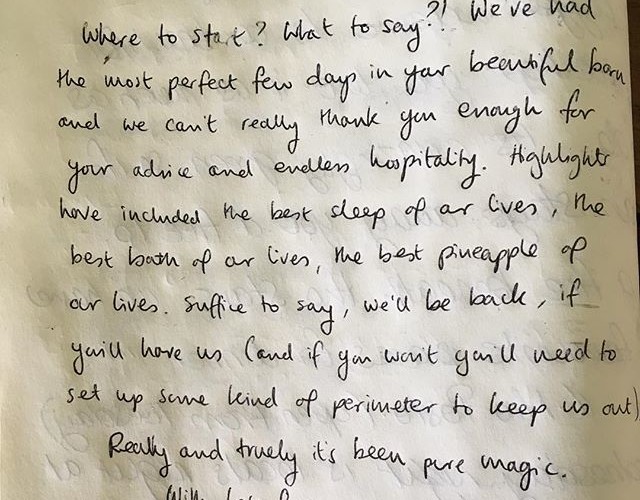 Where to start? What to say?! We've had
the most perfect few days in your beautiful barn
and we can't really thank you enough for
your advice and endless hospitality. Highlights
have included the best sleep of our lives, the
best bath of our lives, the best pineapple of
our lives. Suffice to say, we'll be back, if
you'll have us (and if you won't you'll need to
set up some kind of perimeter to keep us out)
Really and truely it's been pure magic.